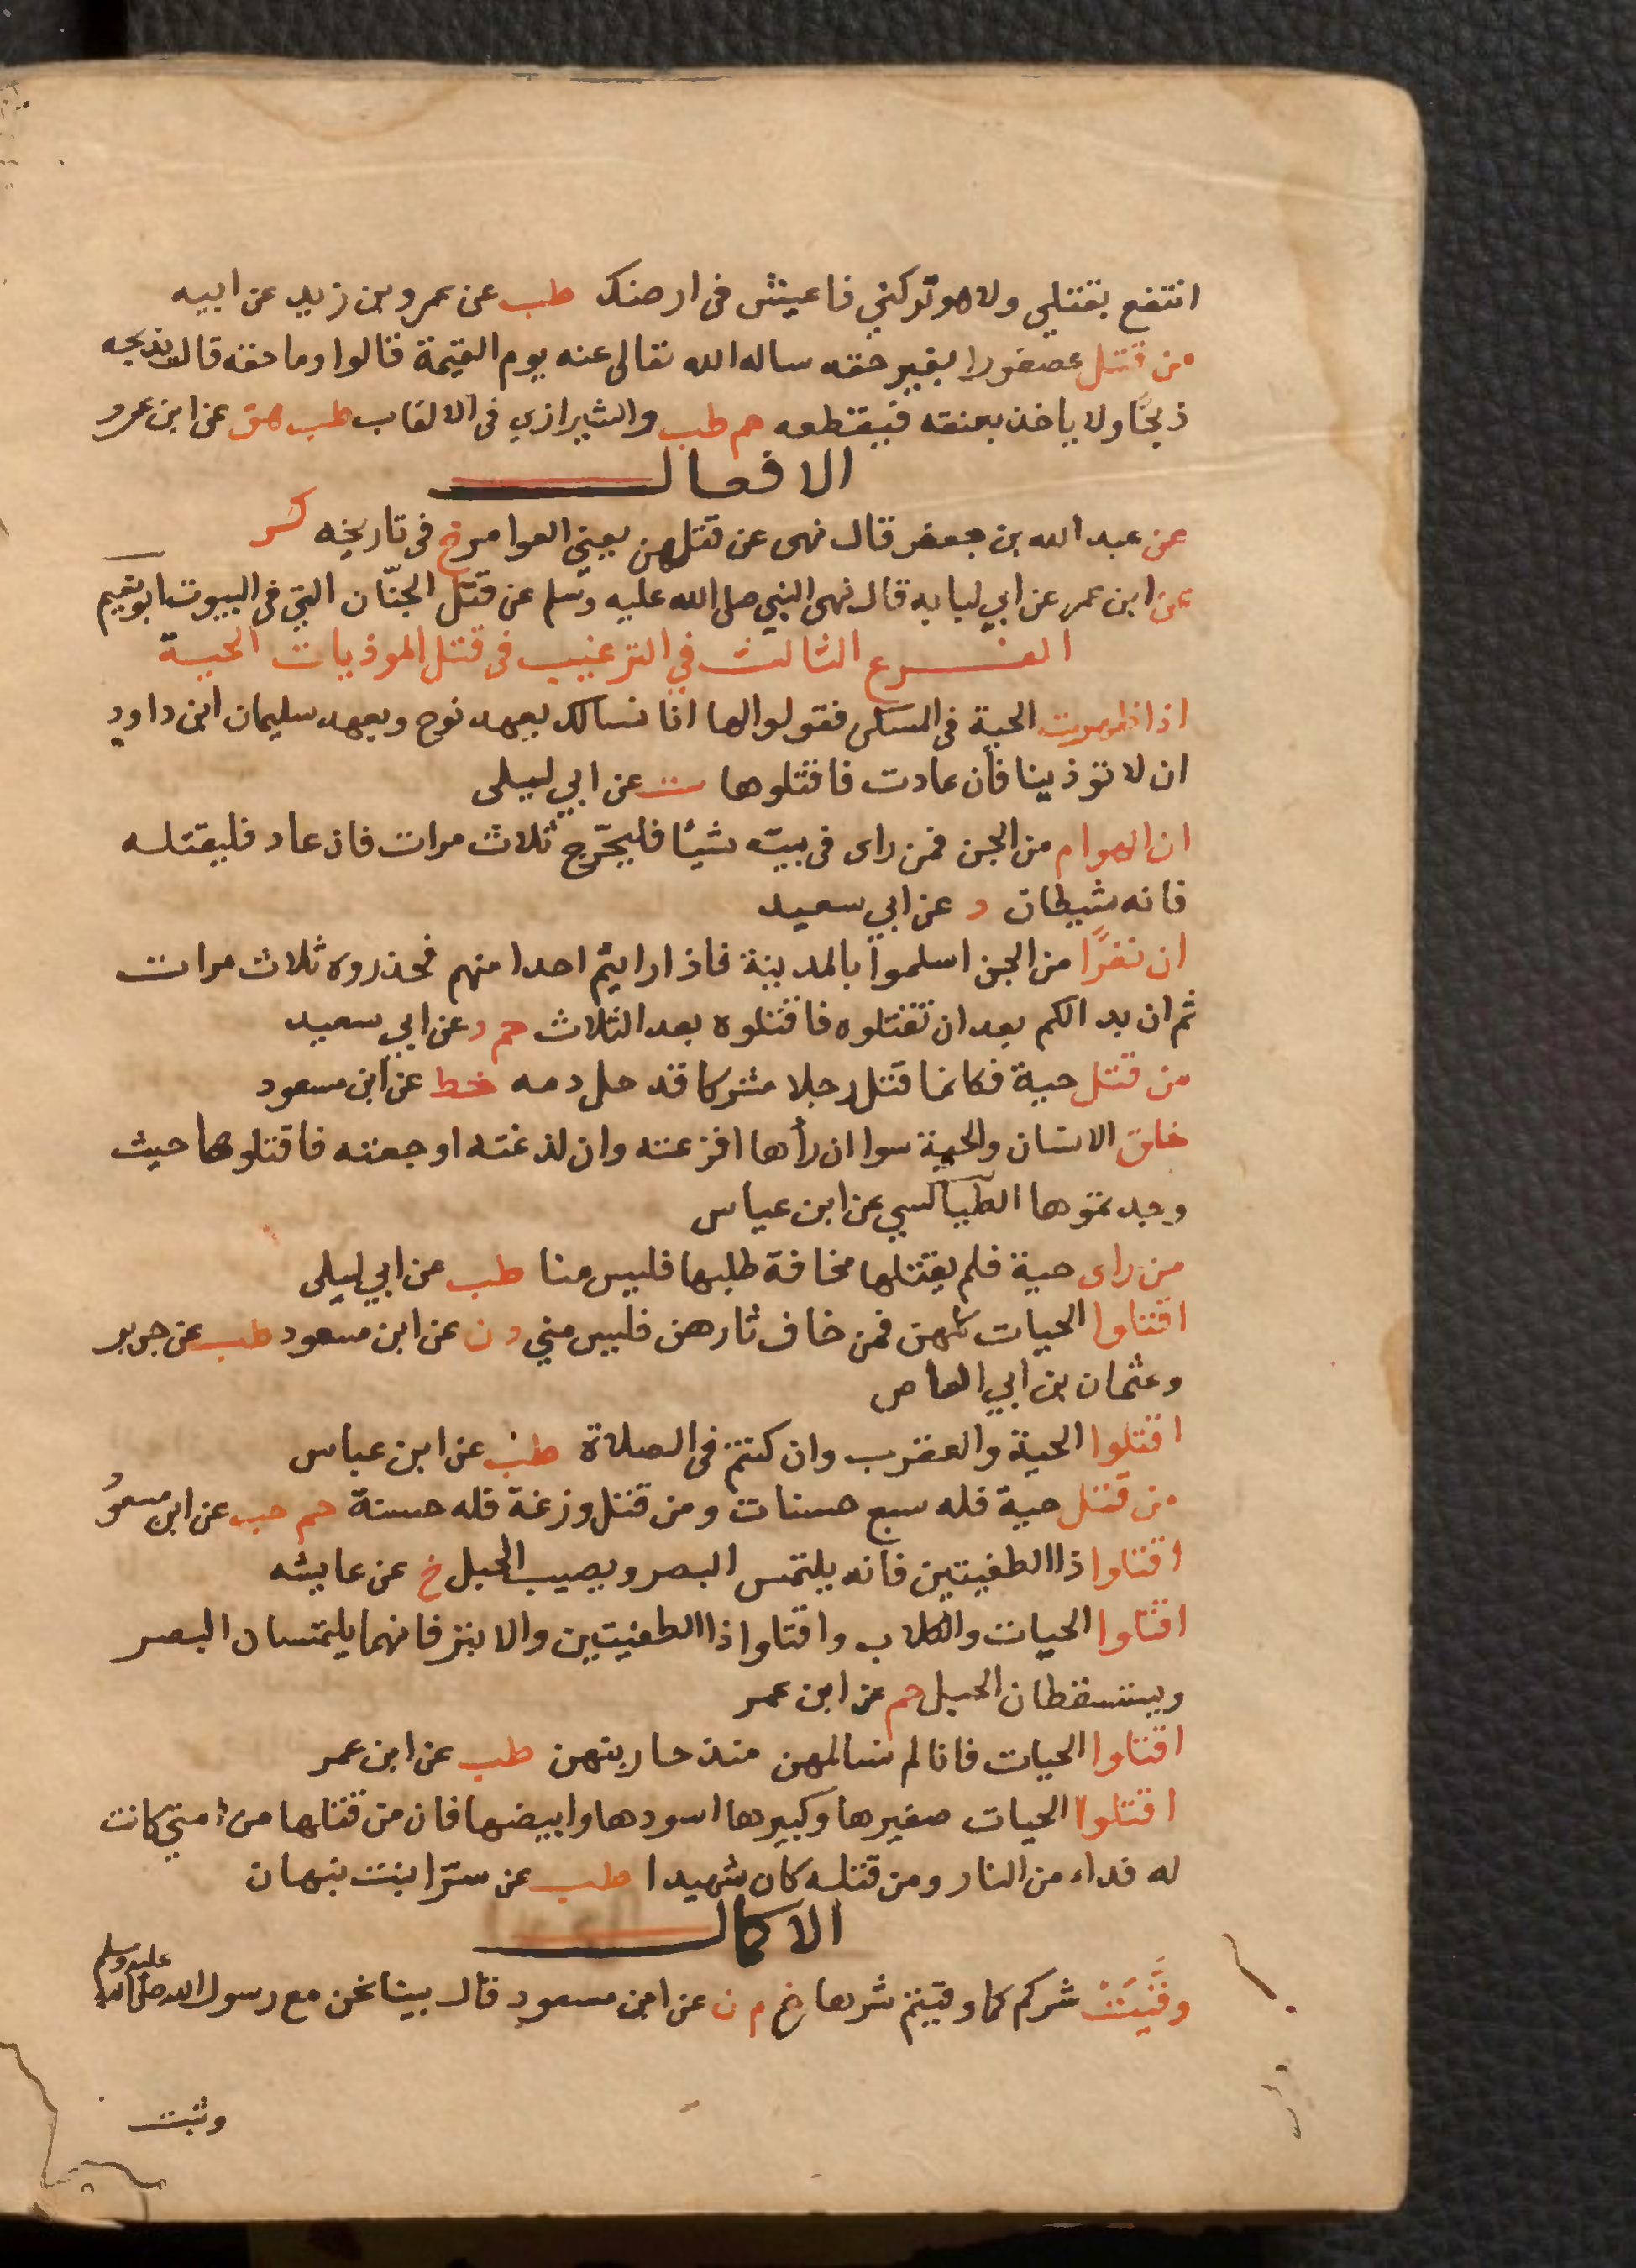 انتفع بقتلي ولا هو تركني فاعيش في ارضك طب عن عمرو بن زيد عن ابيه
من قتل عصفورا بغير حقه ساله الله تعالى عنه يوم القيمة قالوا وما حقه قال يذبحه
ذبحًا ولا ياخذ بعنقه فيقطعه حم طب والشيرازي في الالقاب طب هق عن ابن عمرو
الافعال
عن عبد الله بن جعفر قال نهى عن قتلهن يعني العوامر خ في تاريخه كر
عن ابن عمر عن ابي لبابه قال نهى النبي صلى الله عليه وسلم عن قتل الجنّان التي في البيوت ابو نعيم
الفرع الثالث في الترغيب في قتل الموذيات الحية
اذا ظهرت الحية في المسكن فقولوا لها انا نسالك بعهد نوح وبعهد سليمان ابن داود
ان لا توذينا فأن عادت فاقتلوها ت عن ابي ليلى
ان الهوام من الجن فمن راى في بيته شيئا فليحّرج ثلاث مرات فان عاد فليقتله
فانه شيطان د عن ابي سعيد
ان نفرًا من الجن اسلموا بالمدينة فاذا رايتم احدا منهم فحذروه ثلاث مرات
ثم ان بدا لكم بعد ان تقتلوه فاقتلوه بعد الثلاث حم د عن ابي سعيد
من قتل حية فكانما قتل رجلا مشركا قد حل دمه خط عن ابن مسعود
خلق الانسان والحية سوا ان رأها افزعته وان لدغته اوجعته فاقتلوها حيث
وجدتموها الطيالسي عن ابن عباس
من راى حية فلم يقتلها مخافة طلبها فليس منا طب عن ابي ليلى
اقتلوا الحيات كلهن فمن خاف ثارهن فليس مني د ن عن ابن مسعود طب عن جرير
وعثمان بن ابي العاص
اقتلوا الحية والعقرب وان كنتم في الصلاة طب عن ابن عباس
من قتل حية فله سبع حسنات ومن قتل وزغة فله حسنة حم حب عن ابن مسعود
اقتلوا ذا الطفيتين فانه يلتمس البصر ويصيب الحبل خ عن عايشه
اقتلوا الحيات والكلاب واقتلوا ذا الطفيتين والابتر فانهما يلتمسان البصر
ويستسقطان الحبل حم عن ابن عمر
اقتلوا الحيات فانا لم نسالمهن منذ حاربنهن طب عن ابن عمر
اقتلوا الحيات صغيرها وكبيرها اسودها وابيضها فان من قتلها من امتي كانت
له فداء من النار ومن قتله كان شهيدا طب عن سرّا بنت نبهان
الاكمال
وقَّيَتْ شركم كما وقيتم شرها خ م ن عن ابن مسعود قال بينا نحن مع رسول الله صلى الله عليه وسلم
وثبت